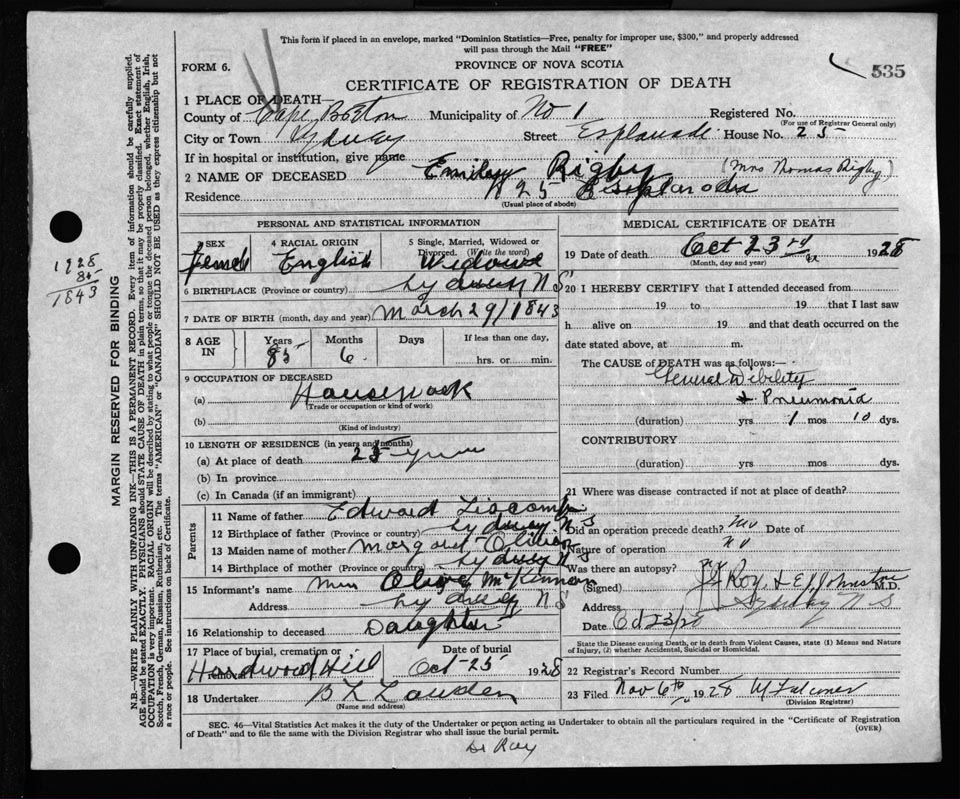 This form if placed in an envelope, marked "Dominion Statistics—Free, penalty for improper use, $300," and properly addressed
will pass through the Mail "FREE"
FORM 6.
PROVINCE OF NOVA SCOTIA
535
CERTIFICATE OF REGISTRATION OF DEATH
1 PLACE OF DEATH—
County of Cape Breton Municipality of No 1 Registered No.
(For use of Registrar General only)
City or Town Sydney Street Esplanade House No. 25
If in hospital or institution, give name
2 NAME OF DECEASED Emiley Rigby (Mrs Thomas Rigby)
Residence 25 Esplanade
(Usual place of abode)
PERSONAL AND STATISTICAL INFORMATION
3 SEX
Female
4 RACIAL ORIGIN
English
5 Single, Married, Widowed or
Divorced. (Write the word)
Widowe
6 BIRTHPLACE (Province or country) Sydney N.S
7 DATE OF BIRTH (month, day and year) March 29/1843
8 AGE
IN
Years
85
Months
6
Days
If less than one day,
hrs. or min.
9 OCCUPATION OF DECEASED
(a) Housework
(Trade or occupation or kind of work)
(b)
(Kind of industry)
10 LENGTH OF RESIDENCE (in years and months)
(a) At place of death 25 years
(b) In province
(c) In Canada (if an immigrant)
Parents
11 Name of father Edward Liscomb
12 Birthplace of father (Province or country) Sydney N.S
13 Maiden name of mother Margaret
14 Birthplace of mother (Province or country) Sydney
15 Informant's name Mrs McKinnon
Address Sydney N S
16 Relationship to deceased Daughter
17 Place of burial, cremation or
Hardwood Hill
Date of burial
Oct-25 1928
18 Undertaker
(Name and address)
MEDICAL CERTIFICATE OF DEATH
19 Date of death Oct 23rd 1928
(Month, day and year)
20 I HEREBY CERTIFY that I attended deceased from
19 to 19 that I last saw
h alive on 19 and that death occurred on the
date stated above, at m.
The CAUSE of DEATH was as follows:—
General Debility
+ Pneumonia
(duration) yrs 1 mos 10 dys.
CONTRIBUTORY
(duration) yrs mos dys.
21 Where was disease contracted if not at place of death?
Did an operation precede death? No Date of
Nature of operation No
Was there an autopsy? No
(Signed) Roy & E J Johnstone M.D.
Address Sydney N S
Date Oct 23/28
State the Disease causing Death, or in death from Violent Causes, state (1) Means and Nature
of Injury, (2) whether Accidental, Suicidal or Homicidal.
22 Registrar's Record Number
23 Filed Nov 6th 1928 M Falconer
(Division Registrar)
SEC. 46—Vital Statistics Act makes it the duty of the Undertaker or person acting as Undertaker to obtain all the particulars required in the "Certificate of Registration
of Death" and to file the same with the Division Registrar who shall issue the burial permit.
(OVER)
Dr Roy
1928
85
1843
MARGIN RESERVED FOR BINDING
N.B.—WRITE PLAINLY WITH UNFADING INK—THIS IS A PERMANENT RECORD. Every item of information should be carefully supplied.
AGE should be stated EXACTLY. PHYSICIANS should STATE CAUSE OF DEATH in plain terms, so that it may be properly classified. Exact statement of
OCCUPATION is very important. RACIAL ORIGIN will be described by stating to what people or tongue the deceased person belonged, whether English, Irish,
Scotch, French, German, Russian, Ruthenian, etc. The terms "AMERICAN" or "CANADIAN" SHOULD NOT BE USED as they express citizenship but not
a race or people. See instructions on back of Certificate.